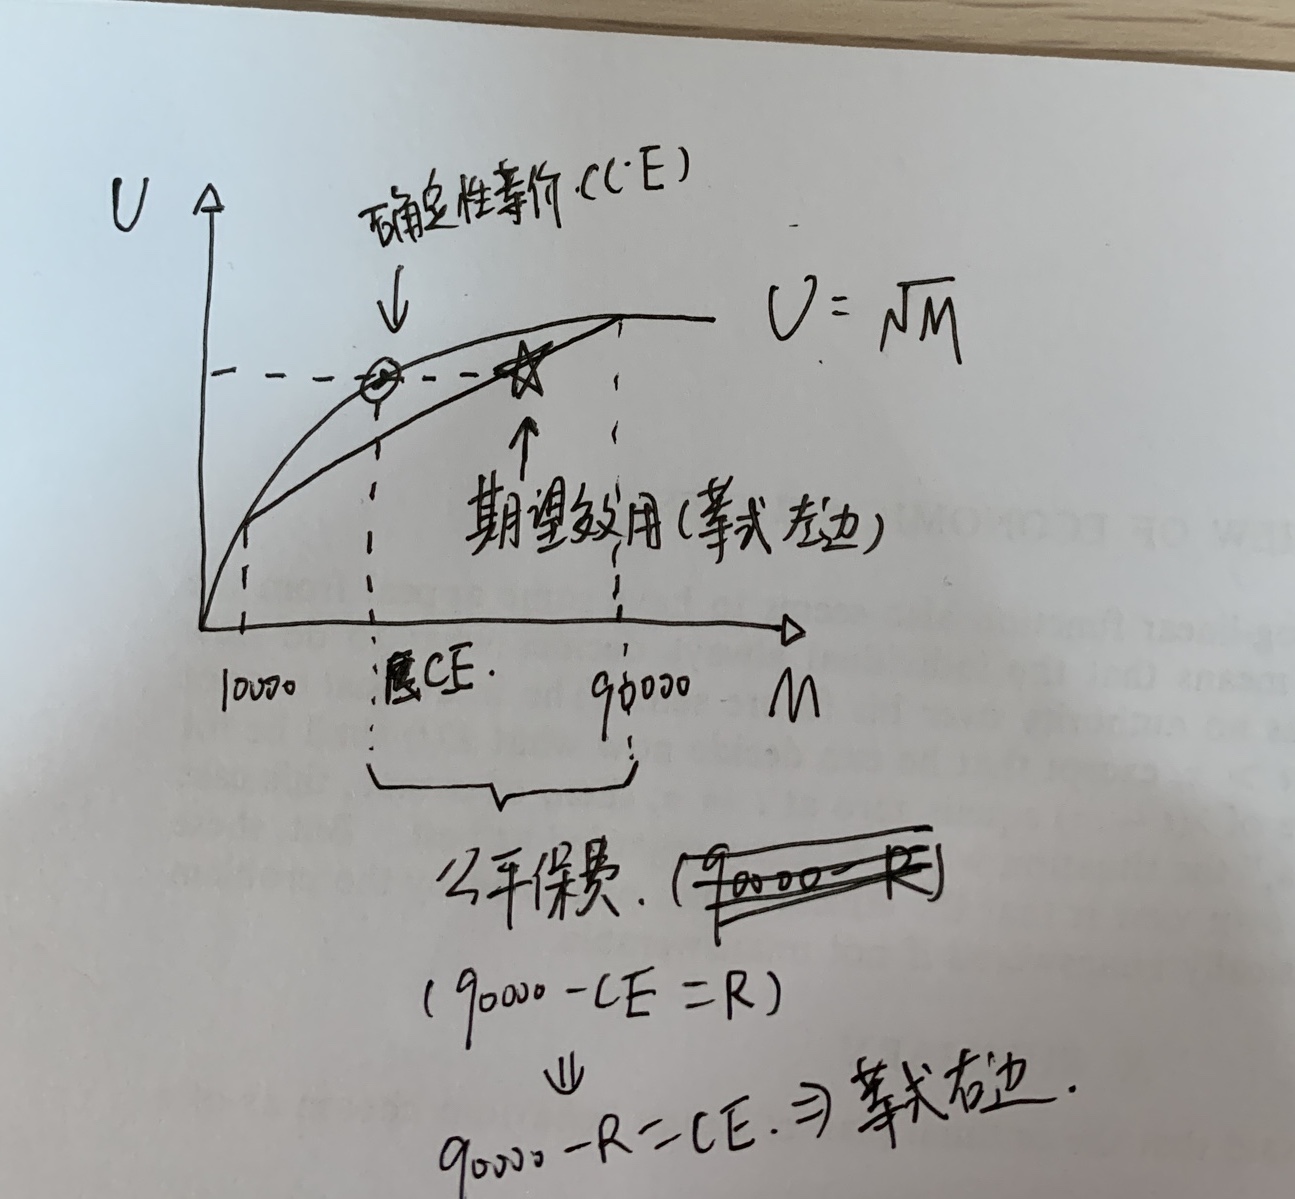 U
确定性等价.(C·E)
U = √M
期望效用(等式左边)
10000
CE.
90000
M
公平保费.
(90000-CE=R)
⇓
90000-R=CE.⇒等式右边.